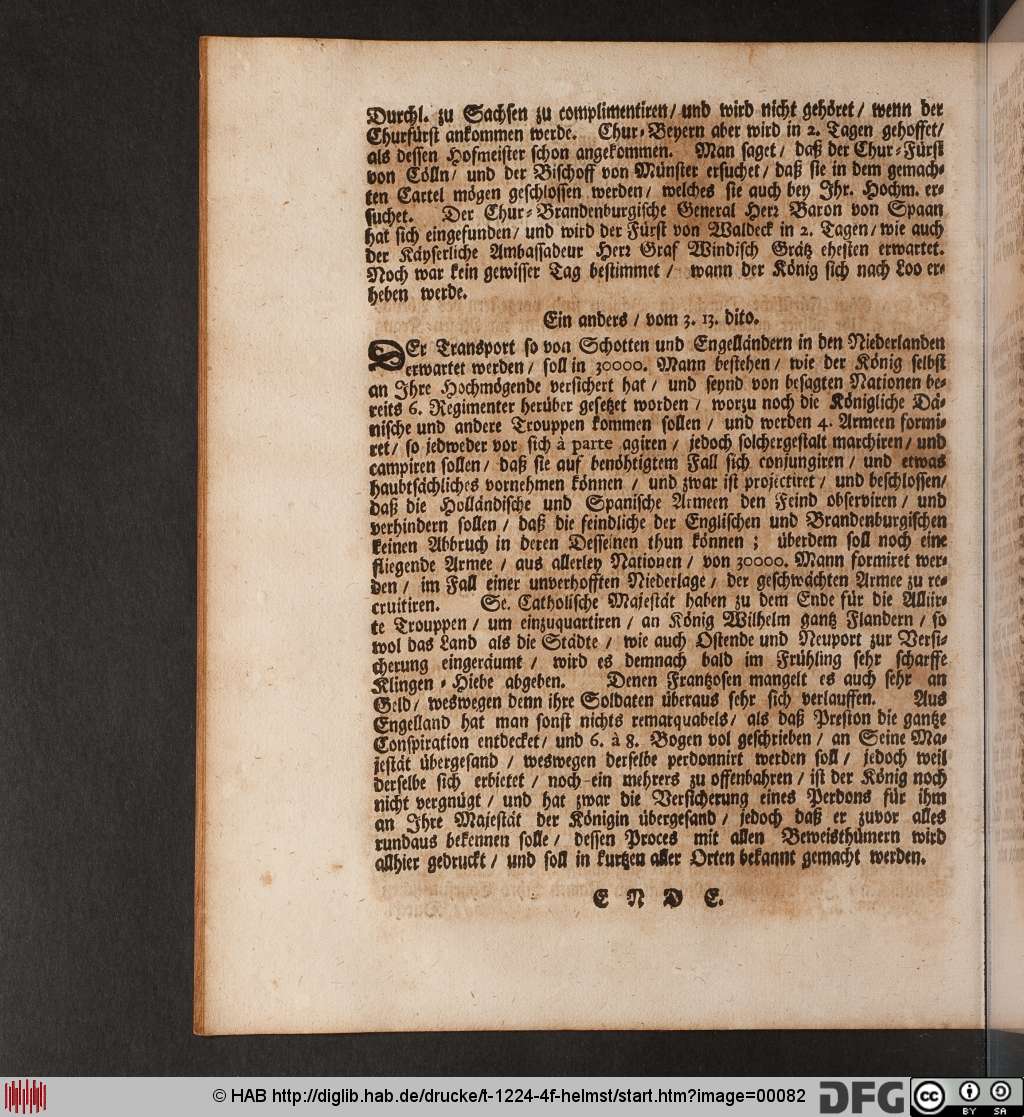 Durchl. zu Sachsen zu complimentiren/ und wird nicht gehöret/ wenn der
Churfürst ankommen werde. Chur-Beyern aber wird in 2. Tagen gehoffet/
als dessen Hofmeister schon angekommen. Man saget/ daß der Chur-Fürst
von Cölln/ und der Bischoff von Münster ersuchet/ daß sie in dem gemach-
ten Cartel mögen geschlossen werden/ welches sie auch bey Ihr. Hochm. er-
suchet. Der Chur-Brandenburgische General Herꝛ Baron von Spaan
hat sich eingefunden/ und wird der Fürst von Waldeck in 2. Tagen/ wie auch
der Käyserliche Ambassadeur Herꝛ Graf Windisch Grätz ehesten erwartet.
Noch war kein gewisser Tag bestimmet/ wann der König sich nach Loo er-
heben werde.
Ein anders/ vom 3. 13. dito.
DEr Transport so von Schotten und Engelländern in den Niederlanden
erwartet werden/ soll in 30000. Mann bestehen/ wie der König selbst
an Ihre Hochmögende versichert hat/ und seynd von besagten Nationen be-
reits 6. Regimenter herüber gesetzet worden/ worzu noch die Königliche Dä-
nische und andere Trouppen kommen sollen/ und werden 4. Armeen formi-
ret/ so jedweder vor sich à parte agiren/ jedoch solchergestalt marchiren/ und
campiren sollen/ daß sie auf benöhtigtem Fall sich conjungiren/ und etwas
haubtsächliches vornehmen können/ und zwar ist projectiret/ und beschlossen/
daß die Holländische und Spanische Armeen den Feind observiren/ und
verhindern sollen/ daß die feindliche der Englischen und Brandenburgischen
keinen Abbruch in deren Desseinen thun können; überdem soll noch eine
fliegende Armee/ aus allerley Nationen/ von 30000. Mann formiret wer-
den/ im Fall einer unverhofften Niederlage/ der geschwächten Armee zu re-
cruitiren. Se. Catholische Majestät haben zu dem Ende für die Alliir-
te Trouppen/ um einzuquartiren/ an König Wilhelm gantz Flandern/ so
wol das Land als die Städte/ wie auch Ostende und Neuport zur Versi-
cherung eingeräumt/ wird es demnach bald im Frühling sehr scharffe
Klingen-Hiebe abgeben. Denen Frantzosen mangelt es auch sehr an
Geld/ weswegen denn ihre Soldaten überaus sehr sich verlauffen. Aus
Engelland hat man sonst nichts remarquabels/ als daß Preston die gantze
Conspiration entdecket/ und 6. à 8. Bogen vol geschrieben/ an Seine Ma-
jestät übergesand/ weswegen derselbe perdonnirt werden soll/ jedoch weil
derselbe sich erbietet/ noch ein mehrers zu offenbahren/ ist der König noch
nicht vergnügt/ und hat zwar die Versicherung eines Perdons für ihm
an Ihre Majestät der Königin übergesand/ jedoch daß er zuvor alles
rundaus bekennen solle/ dessen Proces mit allen Beweisthümern wird
allhier gedruckt/ und soll in kurtzen aller Orten bekannt gemacht werden.
E N D E.
© HAB http://diglib.hab.de/drucke/t-1224-4f-helmst/start.htm?image=00082
DFG
cc
BY SA